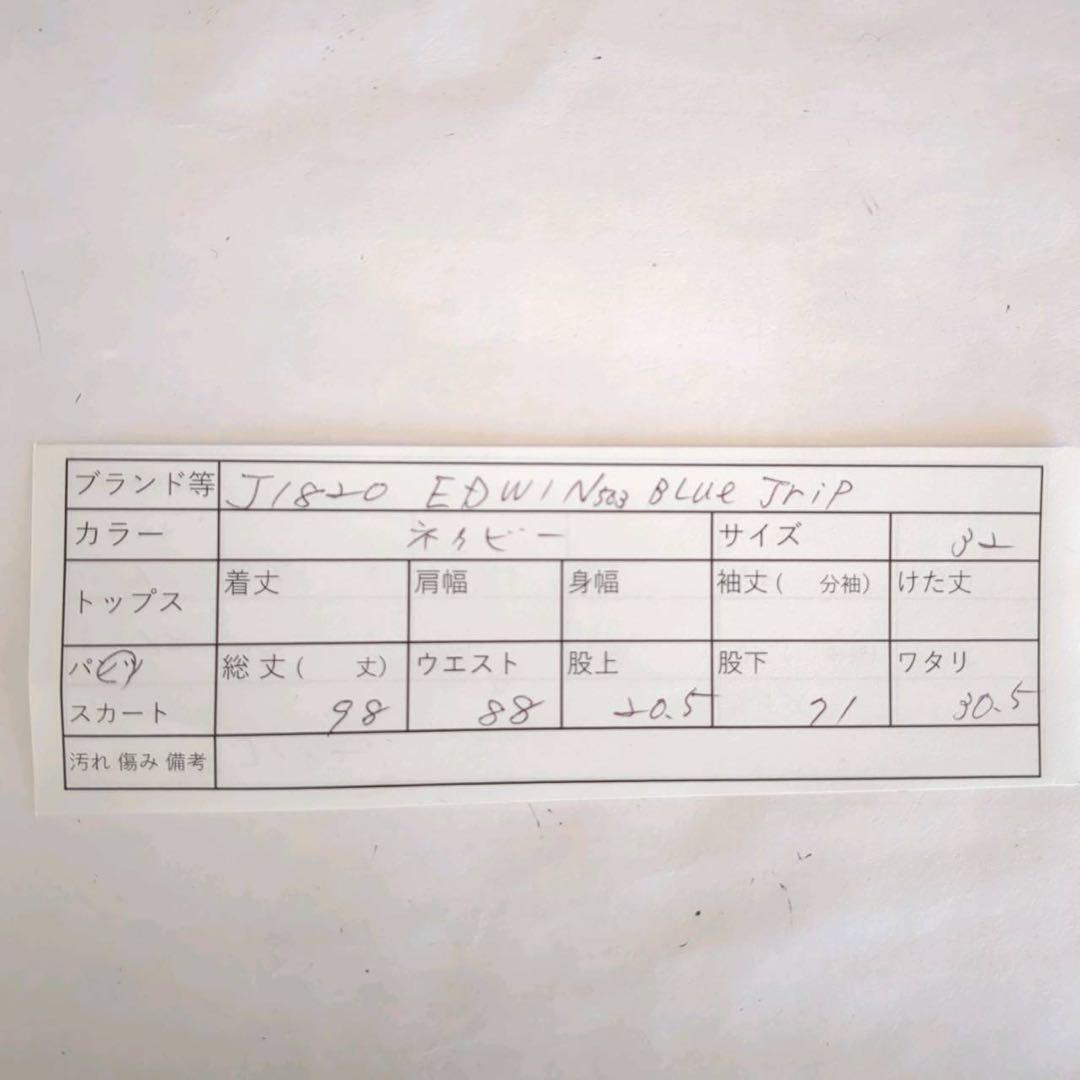 ブランド等 J1820 EDWIN 503 BLUe TriP
カラー ネイビー サイズ 32
トップス 着丈 肩幅 身幅 袖丈( 分袖) けた丈
パンツ 総丈( 丈) ウエスト 股上 股下 ワタリ
スカート 98 88 20.5 71 30.5
汚れ 傷み 備考